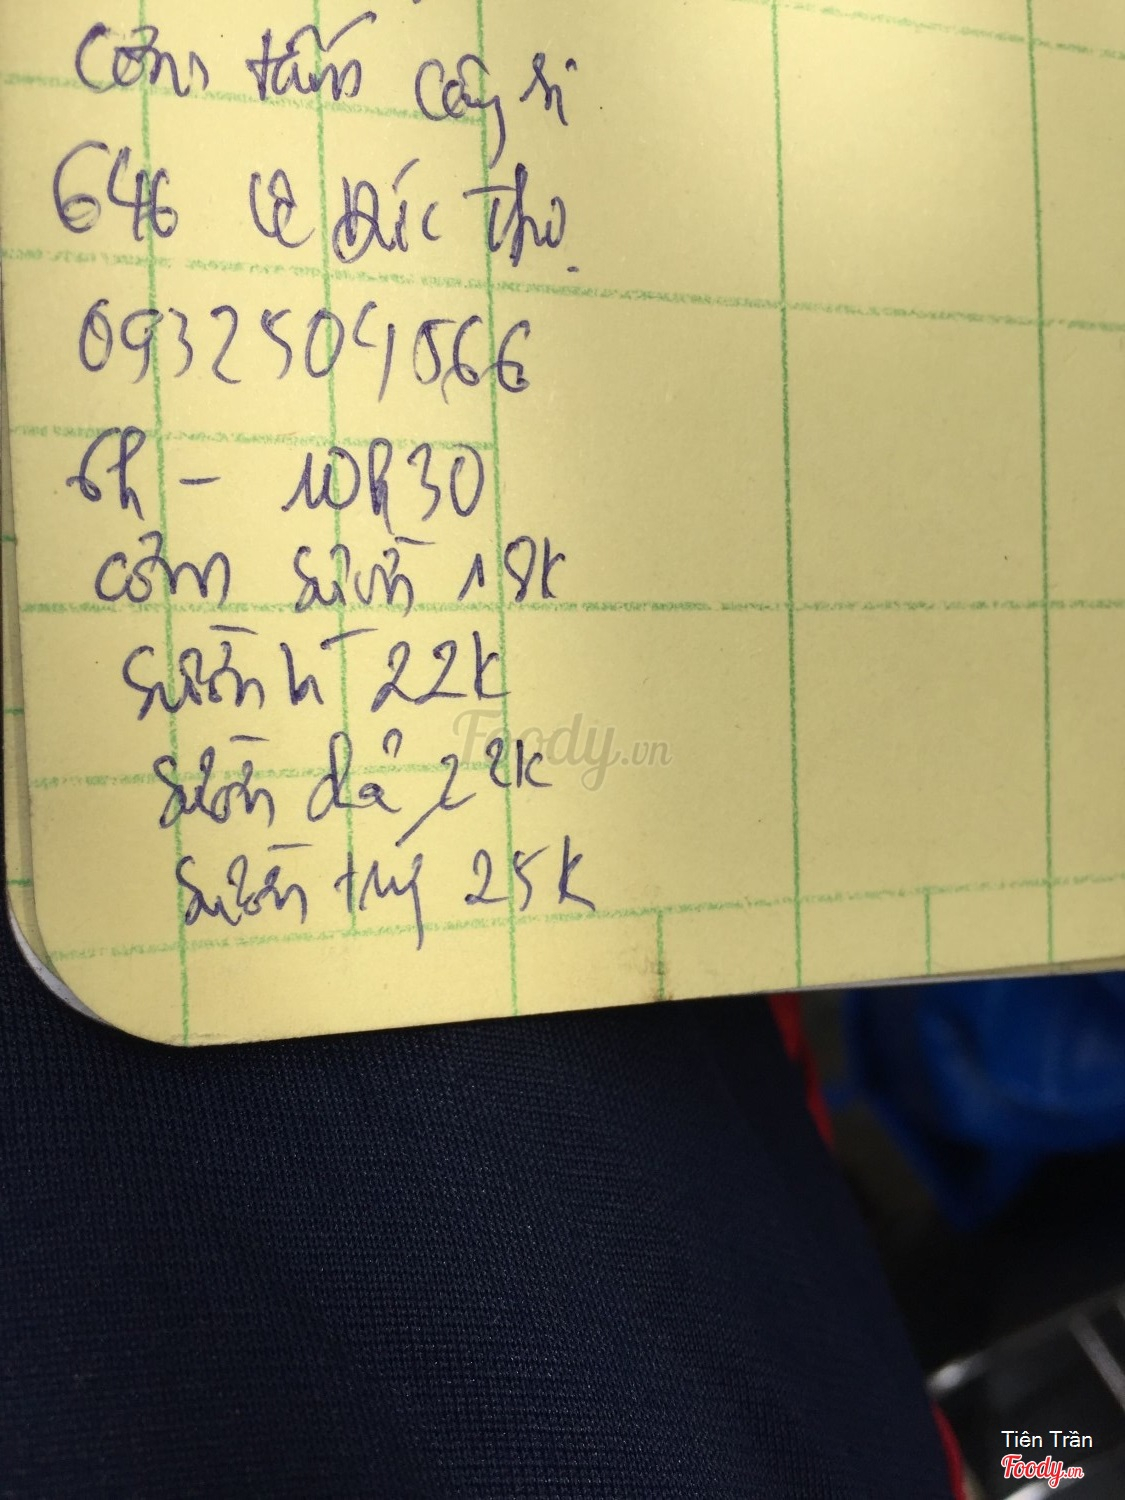 Cơm tấm cây si
646 Lê Đức Thọ
0932504566
6h - 10h30
cơm sườn 18k
sườn bì 22k
sườn chả 22k
sườn trứng 25k
Foody.vn
Tiên Trần
Foody.vn